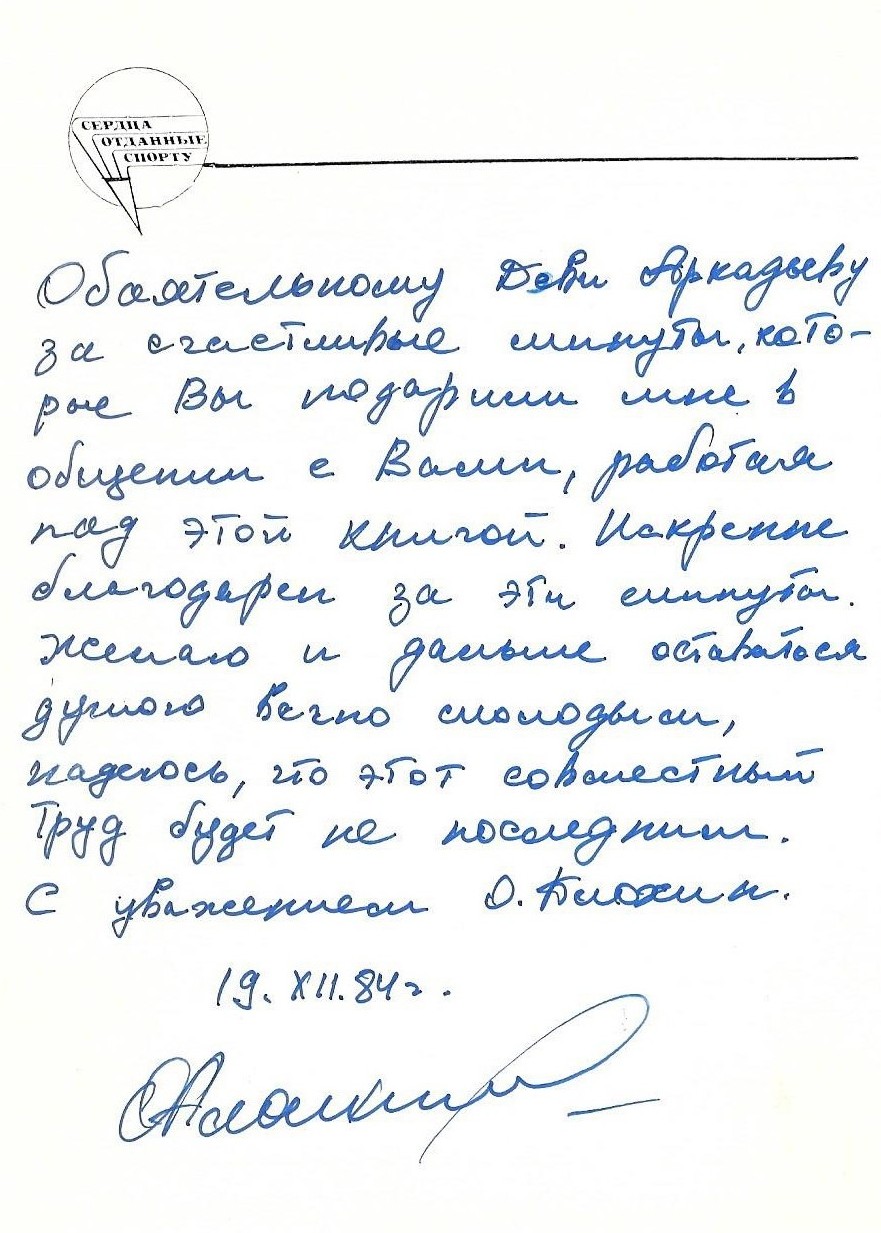 СЕРДЦА
ОТДАННЫЕ
СПОРТУ
Обаятельному Деви Аркадьеву
за счастливые минуты, кото-
рые Вы подарили мне в
общении с Вами, работая
над этой книгой. Искренне
благодарен за эти минуты.
Желаю и дальше оставаться
душою вечно молодым,
надеюсь, что этот совместный
труд будет не последним.
С уважением О. Блохин.
19. XII. 84 г.